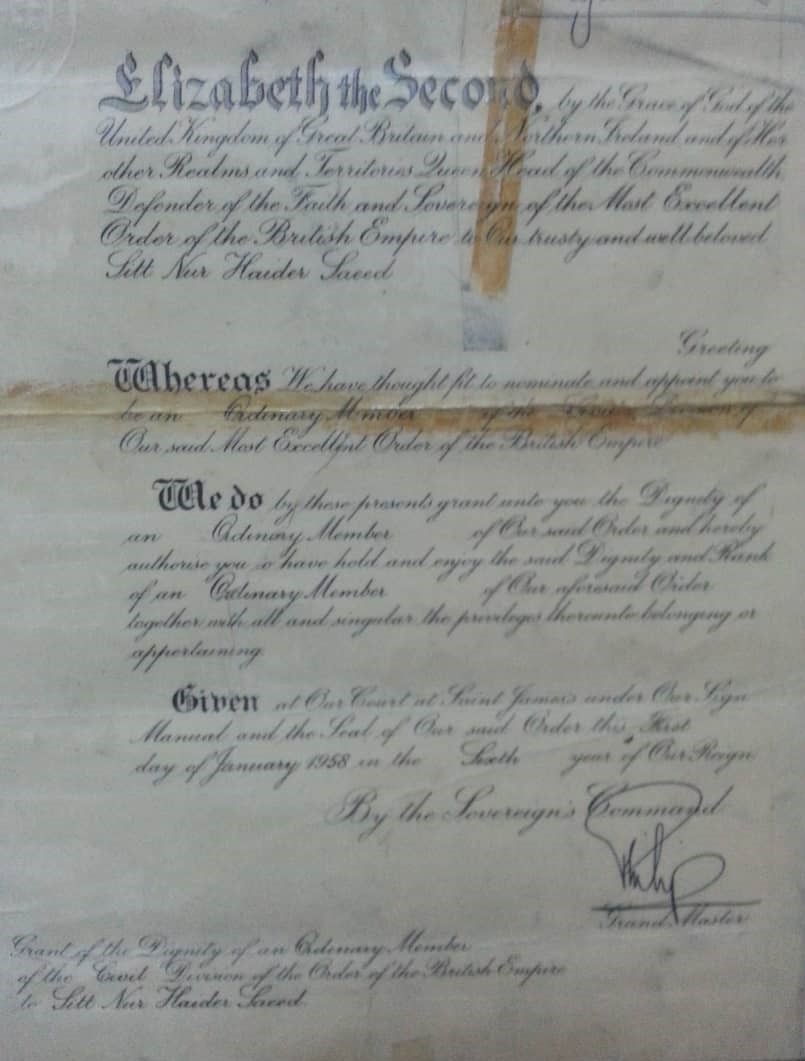 Elizabeth the Second, by the Grace of God of the
United Kingdom of Great Britain and Northern Ireland and of Her
other Realms and Territories Queen Head of the Commonwealth
Defender of the Faith and Sovereign of the Most Excellent
Order of the British Empire to Our trusty and well beloved
Sitt Nur Haider Saeed
Greeting
Whereas We have thought fit to nominate and appoint you to
be an Ordinary Member of the Civil Division of
Our said Most Excellent Order of the British Empire
We do by these presents grant unto you the Dignity of
an Ordinary Member of Our said Order and hereby
authorise you to have hold and enjoy the said Dignity and Rank
of an Ordinary Member of Our aforesaid Order
together with all and singular the privileges thereunto belonging or
appertaining
Given at Our Court at Saint James's under Our Sign
Manual and the Seal of Our said Order this First
day of January 1958 in the Sixth year of Our Reign
By the Sovereign's Command
Philip
Grand Master
Grant of the Dignity of an Ordinary Member
of the Civil Division of the Order of the British Empire
to Sitt Nur Haider Saeed